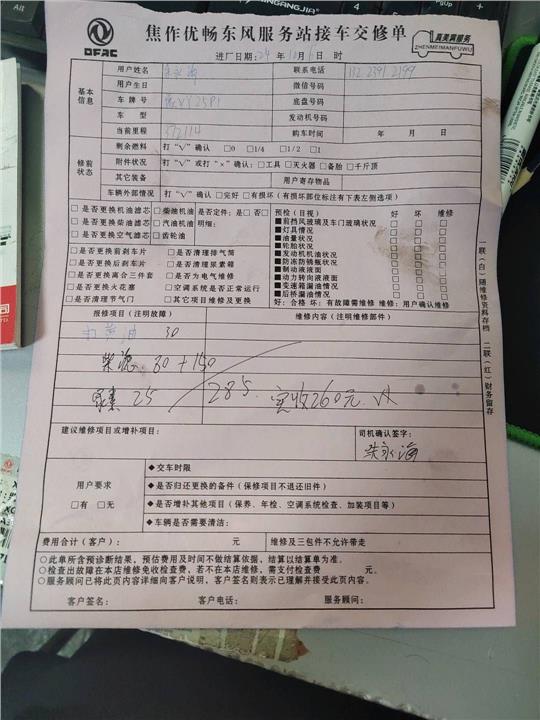 Alt
XINGANGJIA
DFAC
焦作优畅东风服务站接车交修单
真美真服务
ZHENMEIMANFUWU
进厂日期: 24 年 月 日 时
基本信息
用户姓名 联系电话
用户生日 微信号码
车牌号 底盘号码
车型 发动机号码
当前里程 购车时间 年 月 日
修前状态
剩余燃料 打“√”确认 □0 □1/4 □1/2 □1
附件状况 打“√”或打“×”确认: □工具 □灭火器 □备胎 □千斤顶
其它装备 用户寄存物品
车辆外部情况 打“√”确认 □完好 □有损坏(有损坏部位标注有下表左侧选项)
□是否更换机油滤芯 □柴油机油 是否定件: 是□ 否□
□是否更换柴油滤芯 □汽油机油 明细:
□是否更换空气滤芯 □齿轮油
□是否更换前刹车片 □是否清理排气筒
□是否更换后刹车片 □是否清理尿素箱
□是否更换离合三件套 □是否为电气维修
□是否更换火花塞 □空调系统是否正常运行
□是否清理节气门 □其它项目维修及更换
预检(目视) 好 坏 维修
■前挡风玻璃及车门玻璃状况 □ □ □
■灯具情况 □ □ □
■油量状况 □ □ □
■轮胎状况 □ □ □
■发动机机油状况 □ □ □
■防冻防锈瓶状况 □ □ □
■制动液液面 □ □ □
■动力转向液液面 □ □ □
■变速箱漏油情况 □ □ □
■后桥漏油情况 □ □ □
好: 合格 坏: 有故障需维修 维修: 用户确认维修
报修项目(注明故障) 维修内容(注明维修部件)
30
柴滤 80+150
尿素 25 285. 实收260元
建议维修项目或增补项目:
司机确认签字:
永海
用户要求
□有 □无
◆交车时限
◆是否归还更换的备件(保修项目不退还旧件)
◆是否增补其他项目(保养、年检、空调系统检查、加装项目等)
◆车辆是否需要清洁:
费用合计(客户): 元 维修及三包件不允许带走
○此单所含预诊断结果,预估费用及时间不做结算依据,结算以结算单为准。
○检查出故障在本店维修免收检查费,若不在本店维修,需支付检查费 元。
○服务顾问已将此页内容详细向客户说明,客户签名则表示已理解并接受此页内容。
客户签名: 客户电话: 服务顾问:
一联(白)随维修资料存档 二联(红)财务留存